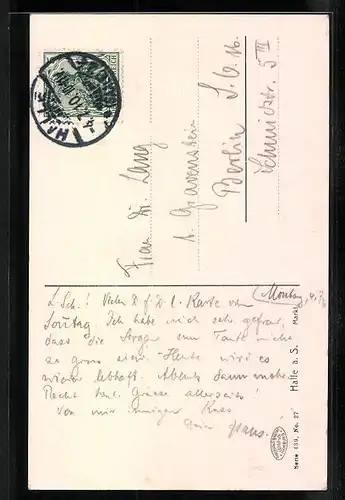 HALLE
Frau Dr. Lang
b. Gravenstein
Berlin S.O. 16.
Schmidstr. 5 III
Montag
L. Sch.! Vielen D. f. D. l. Karte vom
Sonntag. Ich habe mich sehr gefreut,
dass die Sorge um Tante nicht
so gross sind. Heute wird es
wieder lebhaft. Abends dann mehr.
Recht herzl. Grüsse allerseits!
Von mir innigen Kuss
Dein Hans.
Halle a. S. Markt
Serie 439, No. 27